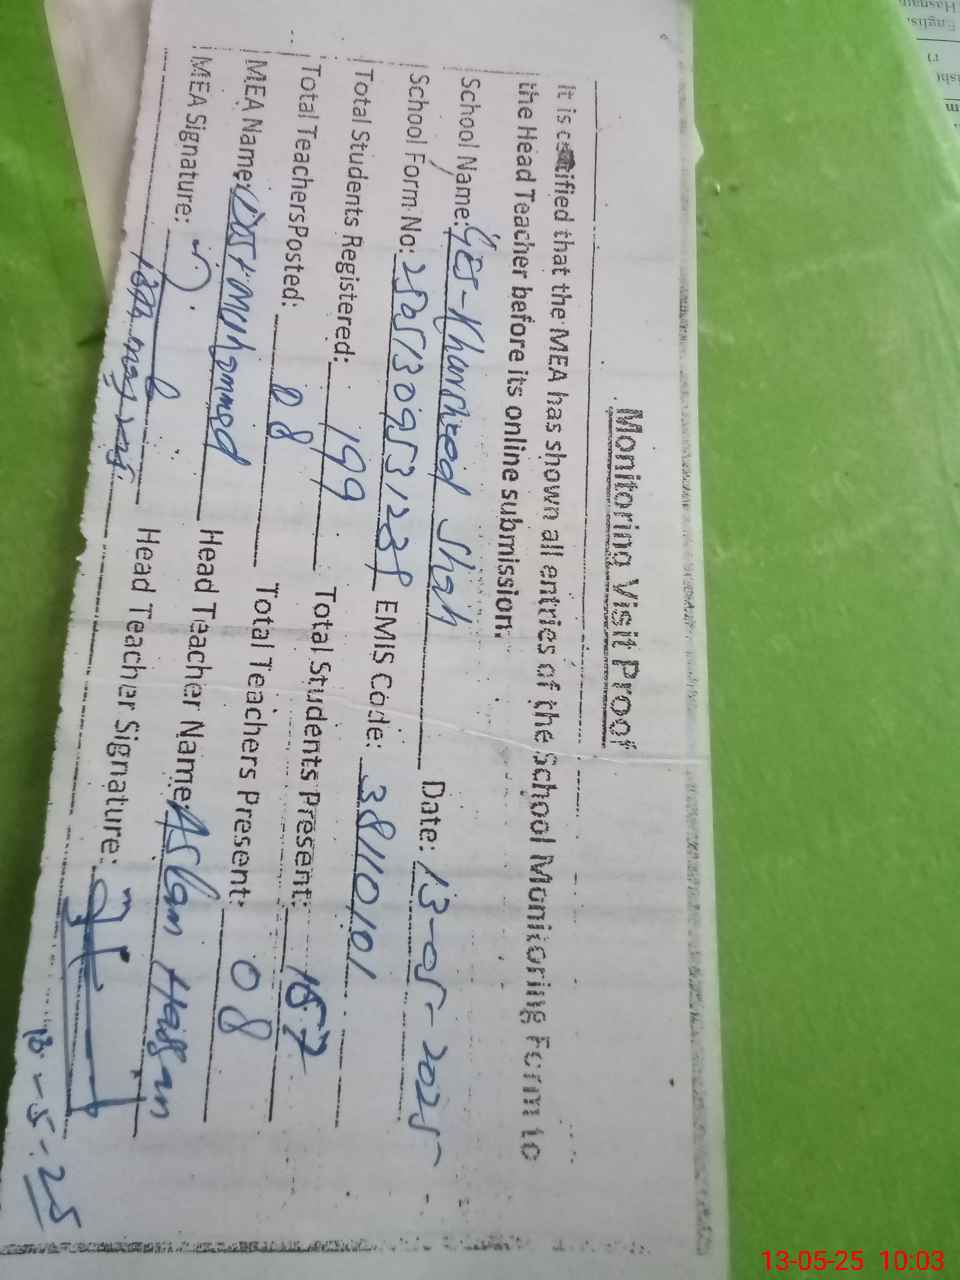 Monitoring Visit Proof
It is certified that the MEA has shown all entries of the School Monitoring Form to
the Head Teacher before its online submission.
School Name: GES-Khursheed Shah Date: 13-05-2025
School Form No: EMIS Code: 38110101
Total Students Registered: 199 Total Students Present: 157
Total Teachers Posted: 08 Total Teachers Present: 08
MEA Name: Dost Muhammad Head Teacher Name: Aslam Hassan
MEA Signature: Head Teacher Signature:
13-5-25
13-05-25 10:03